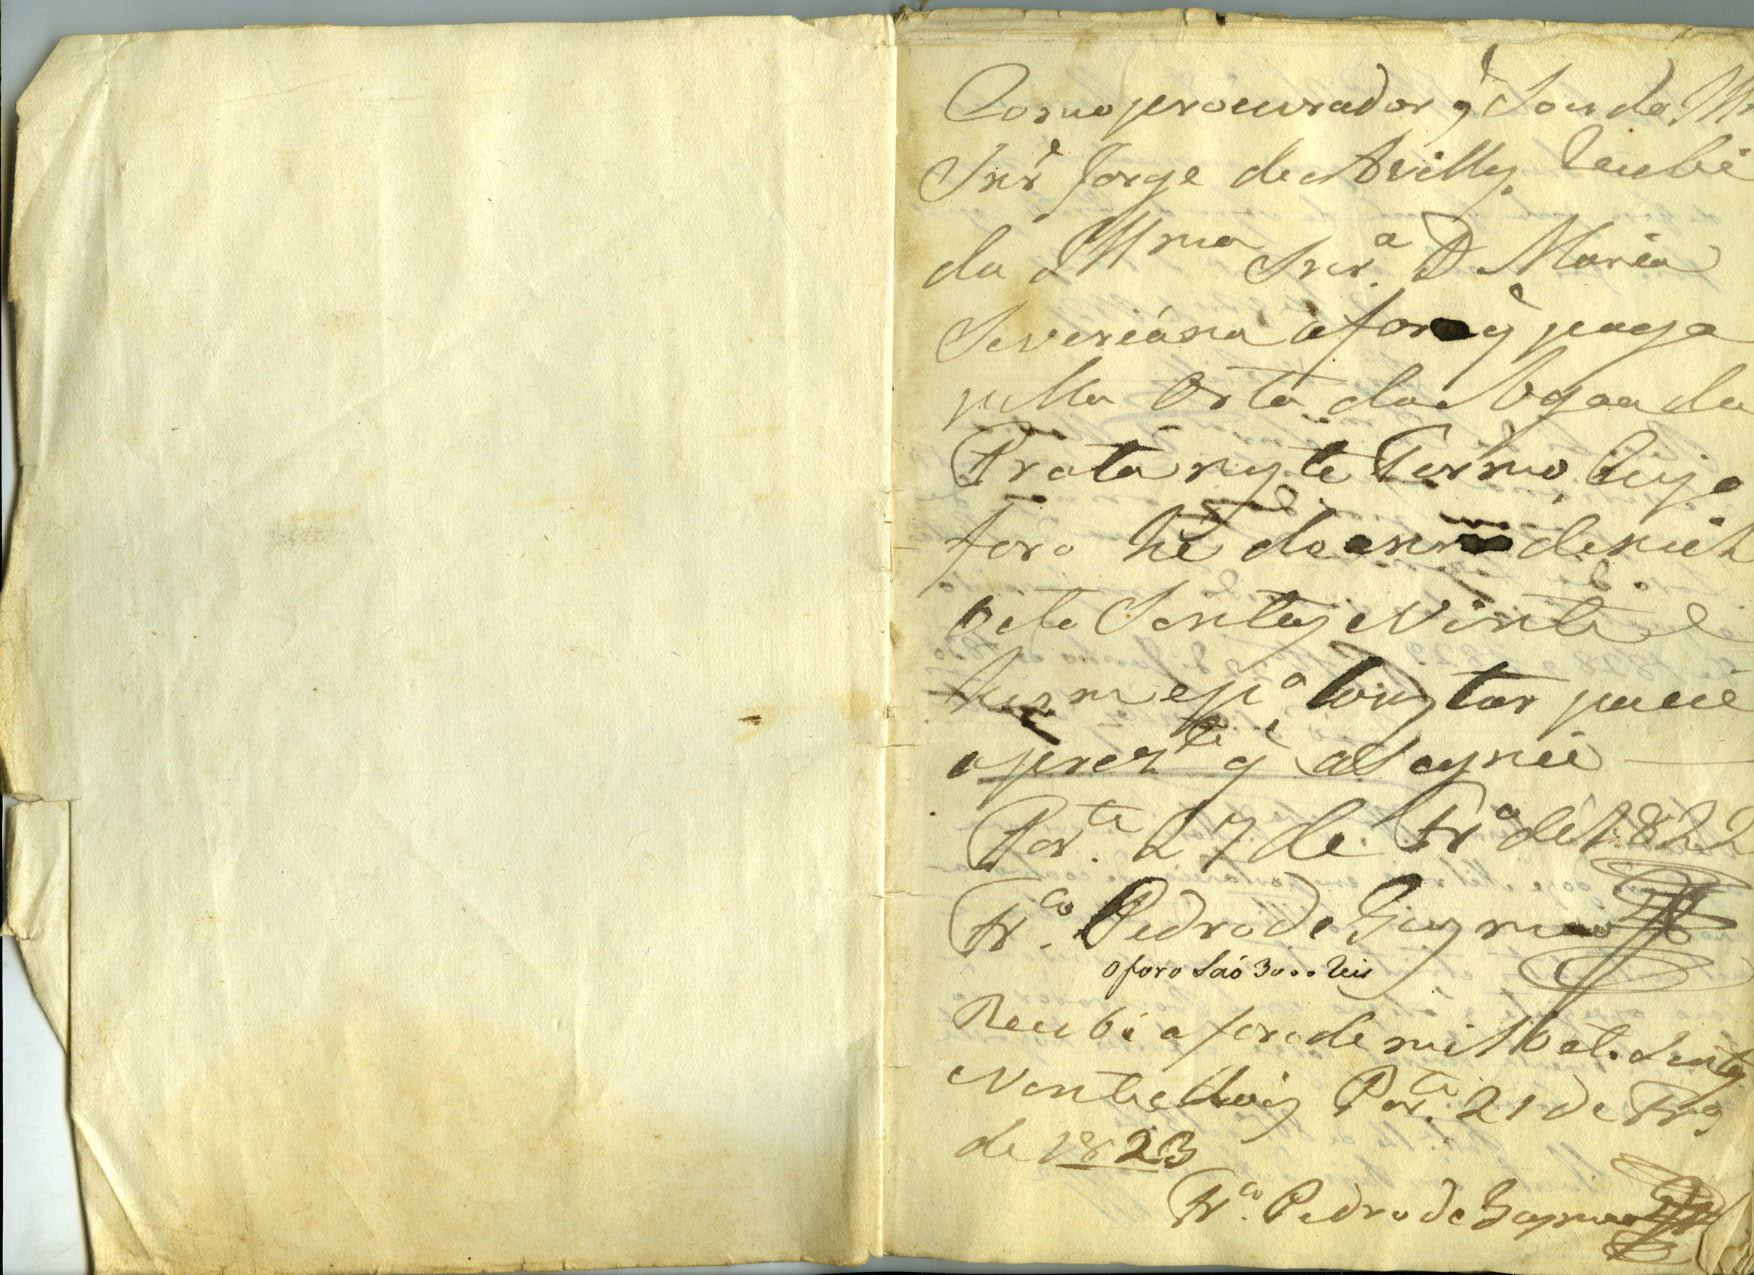 Como procurador q̃ Sou do Illmo
Snr̃ Jorge de Avilly Recubi
da Illma Snr.ª D. Maria
Severiána o foro q̃ paga
pella Orta da Agoa da
Prata nyte Termo Cujo
foro hé do anno de mil
oito Sentoz e Vinte e
hum e p.ª Conytar pacei
o prez.te q̃ aSaynei
Por.te 27 de Fr.º de 1822
Fr.co Pedro de
o foro Saó 3000 Reis
Recubi o foro de mil oito Sentoz
Vinte e doiz Por.te 21 de Fr.º
de 1823
Fr.co Pedro de